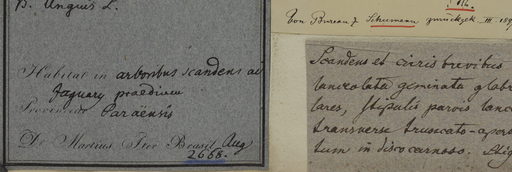 Anguis L.
Habitat in arboribus scandens ad
Jaguary praedium
Provinciae Paraënsis
De Martius, Iter Brasil. Aug
2668.
Von Bureau & Schumann zurück III 189
Scandens et cirris brevibus
lanceolata geminata glabr
lares, Stipulis parvis lanc
transverse truncato-apera
tum in disco carnoso. Stig